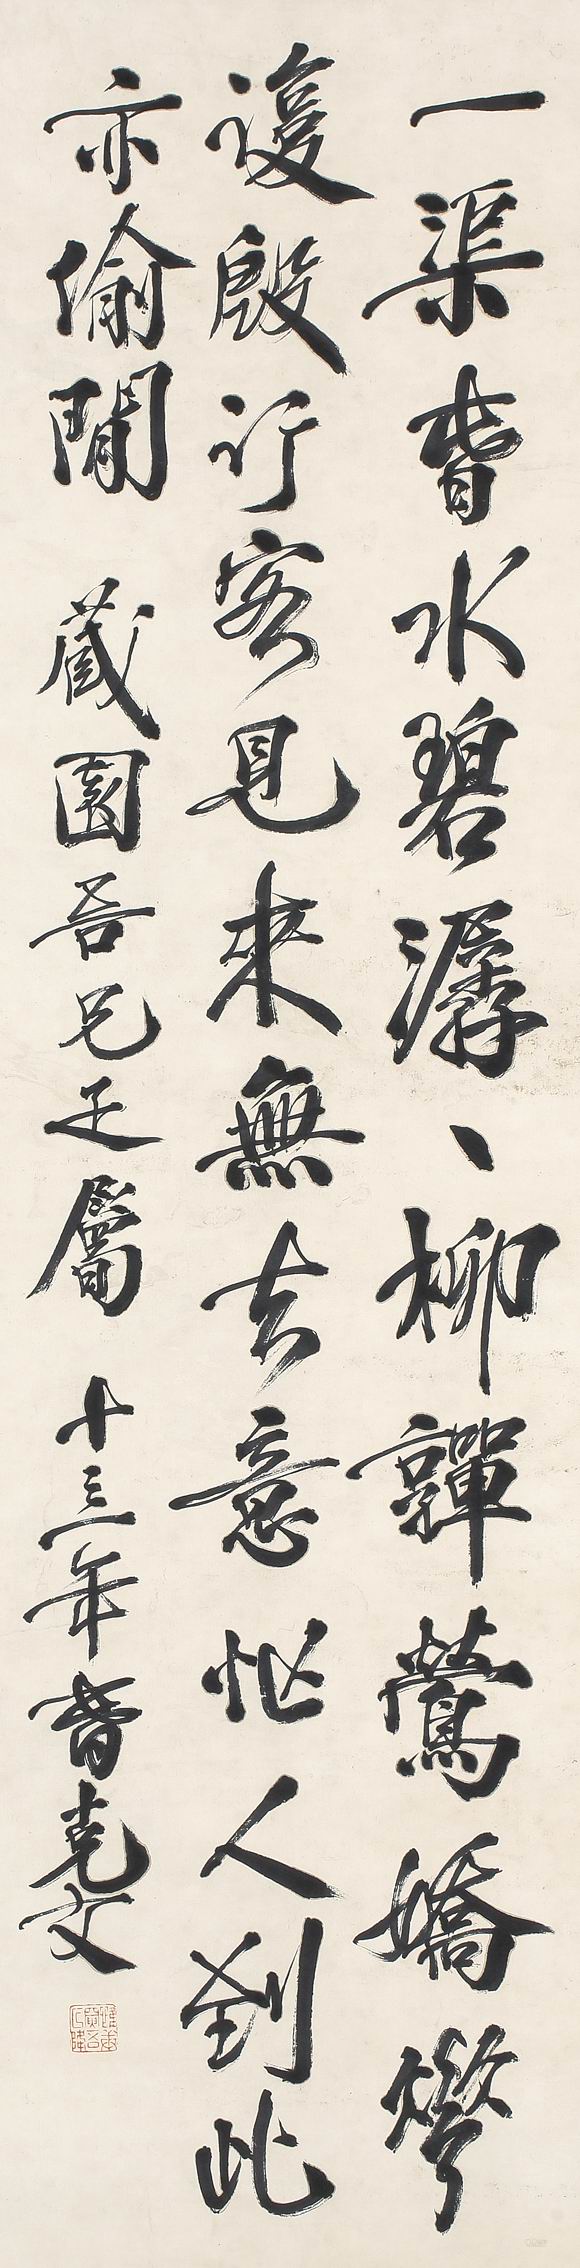 一渠春水碧潺、柳嚲鶯嬌花
複殷行客見來無去意忙人到此
亦偷閒　藏園吾兄正屬　十三年春克文